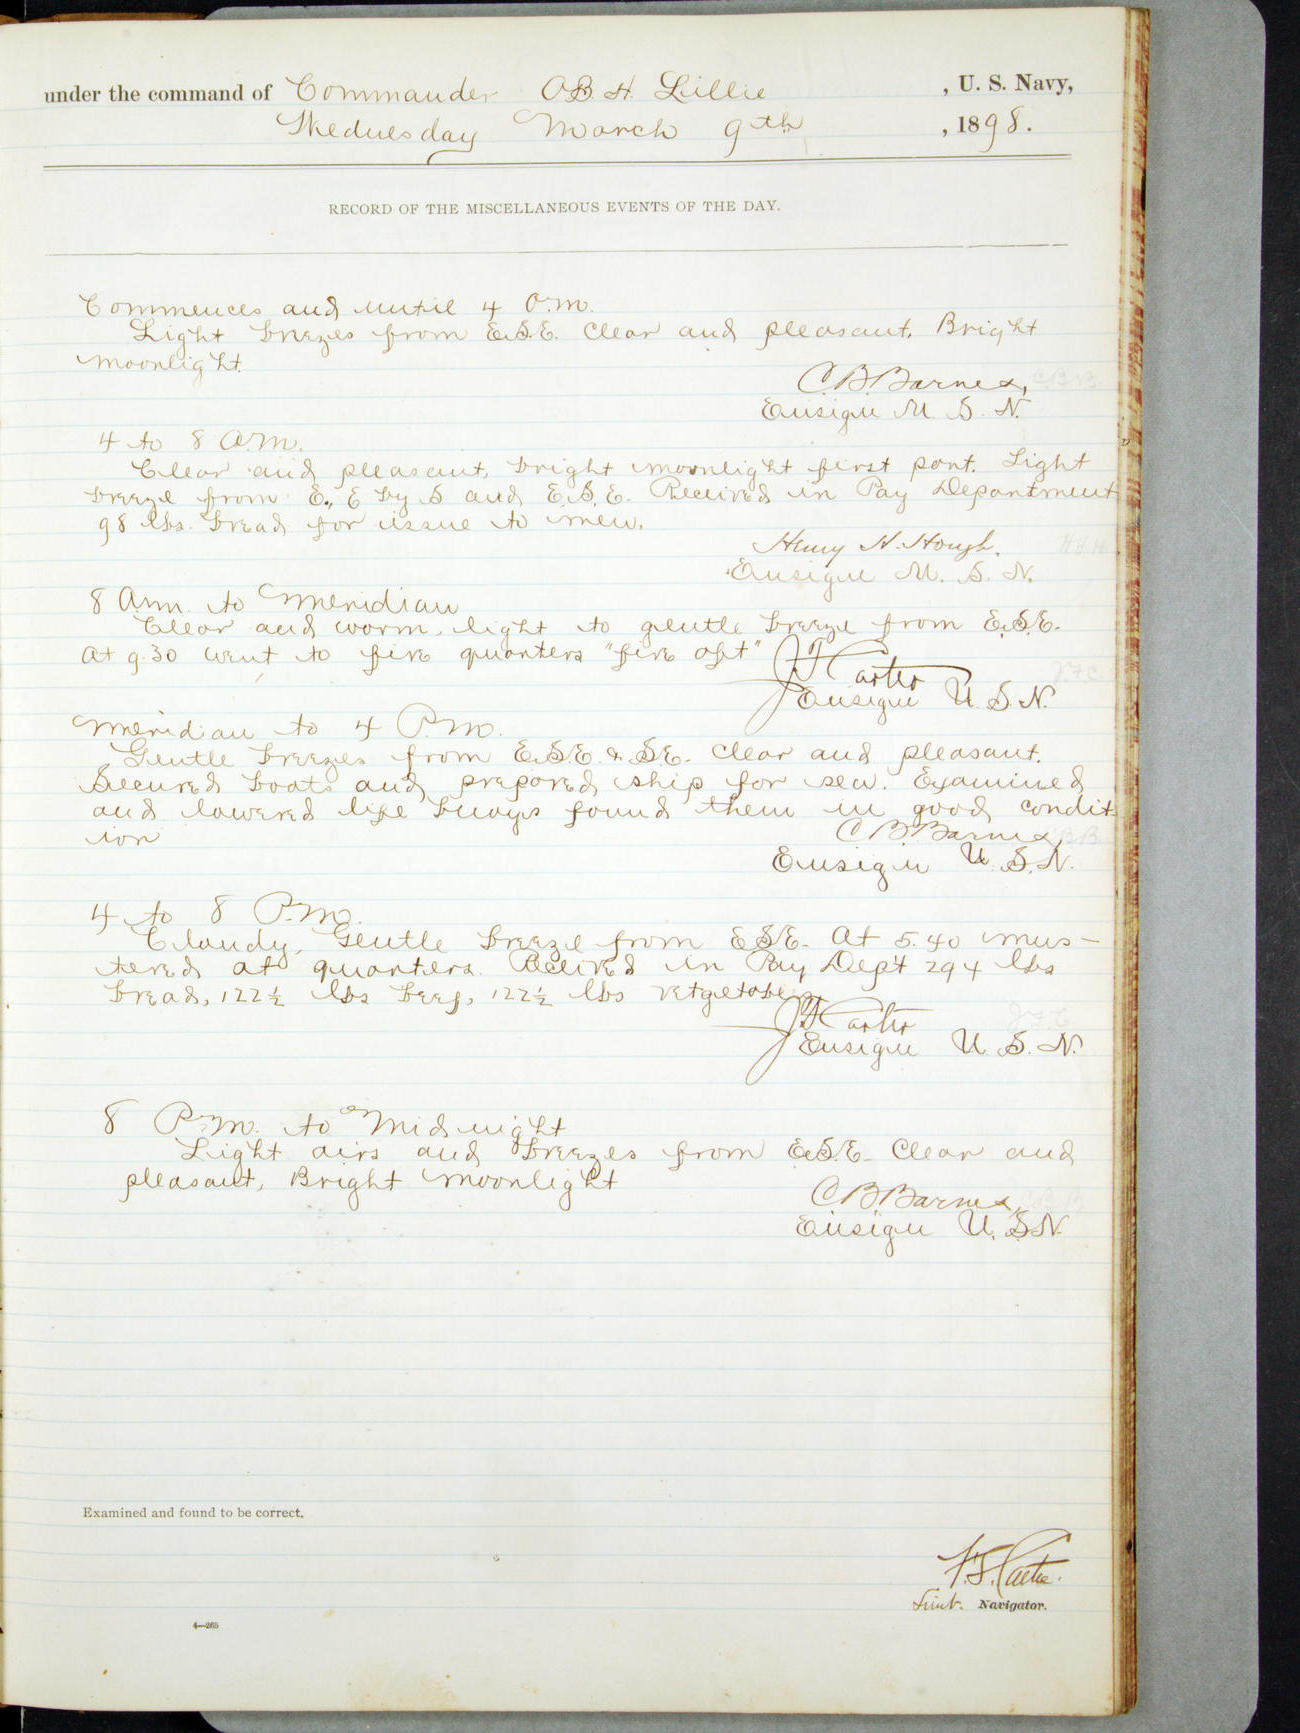 under the command of Commander A.B.H. Lillie, U. S. Navy,
Wednesday March 9th, 1898.
RECORD OF THE MISCELLANEOUS EVENTS OF THE DAY.
Commences and until 4 A.M.
Light breezes from E.S.E. Clear and pleasant. Bright
moonlight.
C.B. Barnes,
Ensign U. S. N.
4 to 8 A.M.
Clear and pleasant, bright moonlight first part. Light
breeze from E., E by S and E.S.E. Received in Pay Department
98 lbs. bread for issue to men.
Henry H. Hough.
Ensign U. S. N.
8 A.M. to Meridian
Clear and warm, light to gentle breeze from E.S.E.
At 9.30 went to fire quarters "fire aft"
J F Carter
Ensign U. S. N.
Meridian to 4 P.M.
Gentle breezes from E.S.E. & S.E. Clear and pleasant.
Secured boats and prepared ship for sea. Examined
and lowered life buoys found them in good condit-
ion
C.B. Barnes,
Ensign U. S. N.
4 to 8 P.M.
Cloudy, Gentle breeze from E.S.E. At 5.40 mus-
tered at quarters. Received in Pay Dep't 294 lbs
bread, 122½ lbs beef, 122½ lbs vegetables.
J F Carter
Ensign U. S. N.
8 P.M. to Midnight
Light airs and breezes from E.S.E. Clear and
pleasant, Bright moonlight
C B Barnes,
Ensign U. S. N.
Examined and found to be correct.
Lieut. Navigator.
4—265